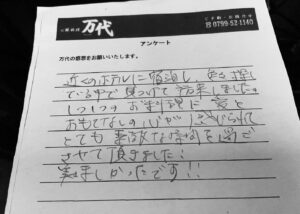 万代
ご予約・お問合せ
☎0799-52-1140
アンケート
万代の感想をお聞かせいたします。
近くのホテルに宿泊し、お店を探し
ている中で見つけて予約しました。
1つ1つのお料理に愛と
おもてなしの心が込められて
とても素敵な時間を過ご
させて頂きました!
美味しかったです!!